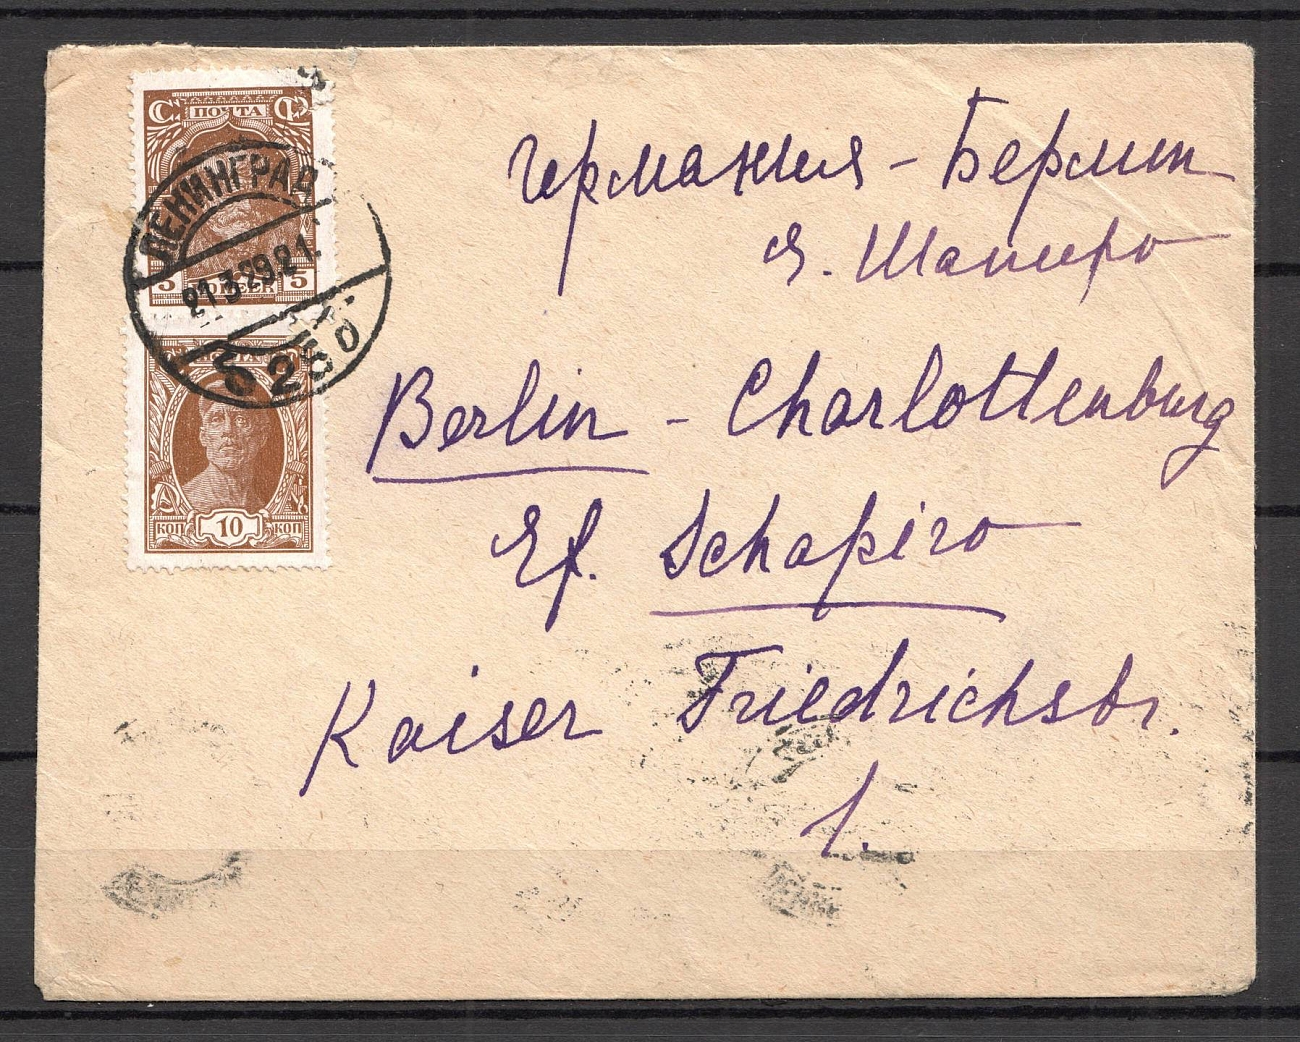 ПОЧТА
5 5
КОПЕЕК
ЛЕНИНГРАД
21.3.29.21.
10
КОП КОП
Германия - Берлин
Я. Шапиро
Berlin - Charlottenburg
Ef. Schapiro
Kaiser Friedrichstr.
1.